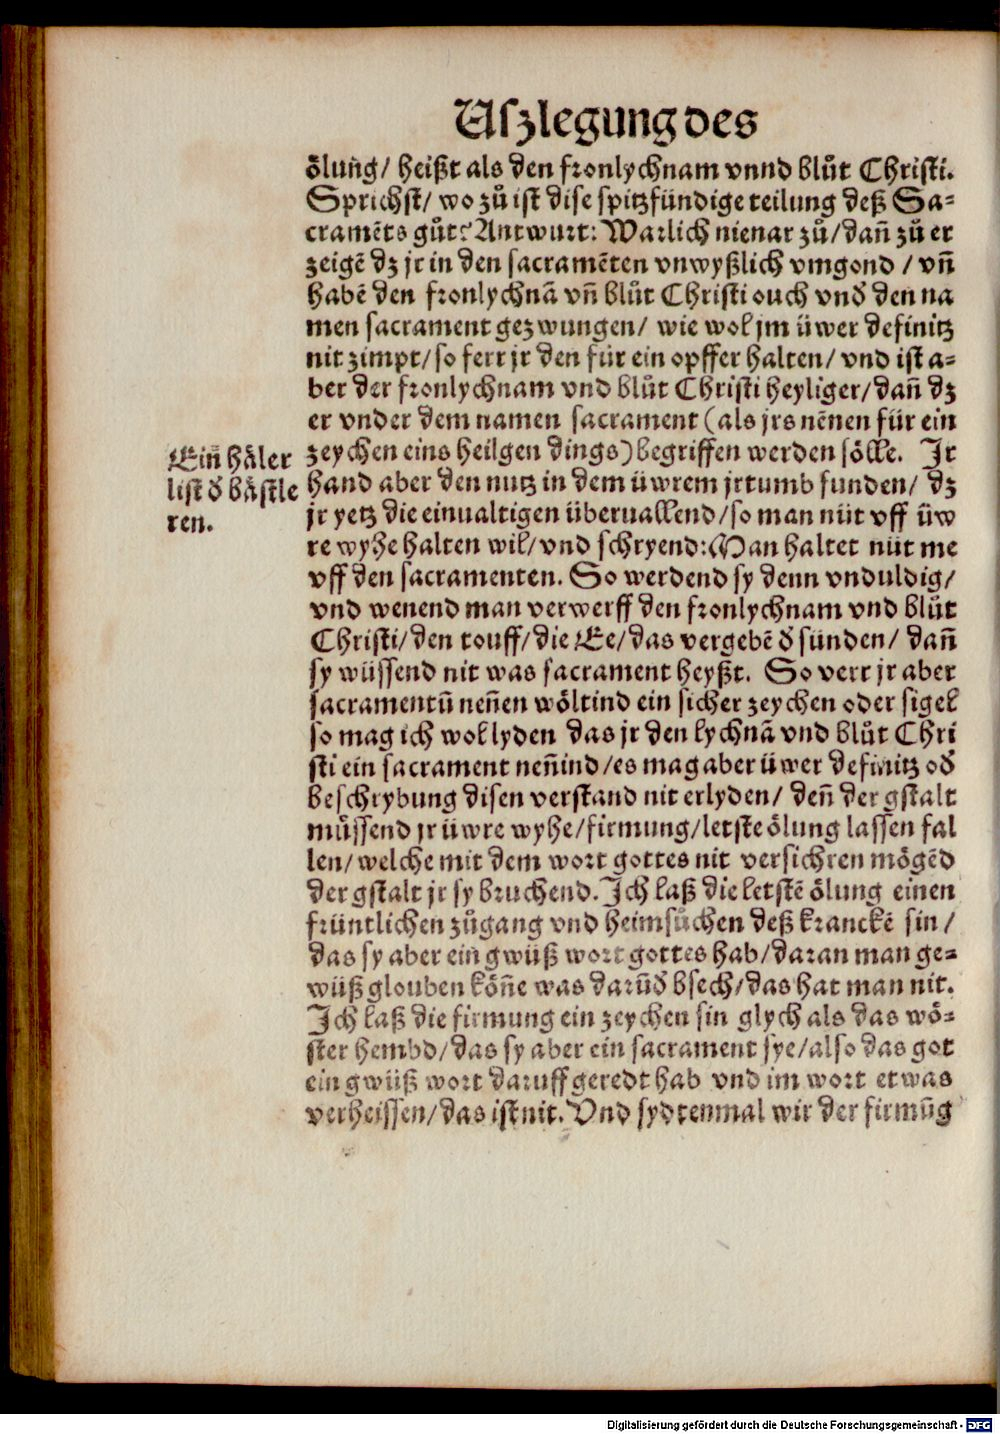 Uſzlegung des
ölung/ heißt als den fronlychnam vnnd blůt Christi.
Sprichst/ wo zů ist dise spitzfündige teilung deß Sa-
cramēts gůt? Antwurt: Warlich nienar zů/dañ zů er
zeigē dz jr in den sacramēten vnwyßlich vmgond / vñ
habē den fronlychnā vñ blůt Christi ouch vnđ den na
men sacrament gezwungen/ wie wol jm üwer definitz
nit zimpt/so ferr jr den für ein opffer halten/ vnd ist a-
ber der fronlychnam vnd blůt Christi heyliger/dañ dz
er vnder dem namen sacrament (als jrs nēnen für ein
zeychen eins heilgen dings) begriffen werden sölle. Jr
hand aber den nutz in dem üwrem jrtumb funden/ dz
jr yetz die einualtigen überuallend/so man nüt vff üw
re wyhe halten wil/vnd schryend: Man haltet nüt me
vff den sacramenten. So werdend sy denn vnduldig/
vnd wenend man verwerff den fronlychnam vnd blůt
Christi/den touff/die Ee/das vergebē đ sünden/ dañ
sy wüssend nit was sacrament heyßt. So verr jr aber
sacramentū neñen wöltind ein sicher zeychen oder sigel
so mag ich wol lyden das jr den lychnā vnd blůt Chri
sti ein sacrament neñind/es mag aber üwer definitz ođ
beschrybung disen verstand nit erlyden/ deñ der gstalt
müssend jr üwre wyhe/firmung/letste ölung lassen fal
len/welche mit dem wort gottes nit versichren mögēd
der gstalt jr sy bruchend. Jch laß die letstē ölung einen
früntlichen zůgang vnd heimsůchen deß kranckē sin/
das sy aber ein gwüß wort gottes hab/daran man ge-
wüß glouben köñe was darūđ bsech/das hat man nit.
Jch laß die firmung ein zeychen sin glych als das wö-
ster hembd/das sy aber ein sacrament sye/also das got
ein gwüß wort daruff geredt hab vnd im wort etwas
verheissen/das ist nit. Vnd sydtenmal wir der firmūg
Eiñ häler
list đ bästle
ren.
Digitalisierung gefördert durch die Deutsche Forschungsgemeinschaft - DFG